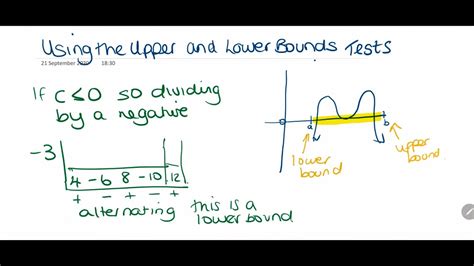 Using the Upper and Lower Bounds Tests
21 September 2020 18:30
If c≤0 so dividing
by a negative
-3
4 -6 8 -10 12
+ - + - +
alternating this is a
lowerbound
a
b
lower
bound
upper
bound